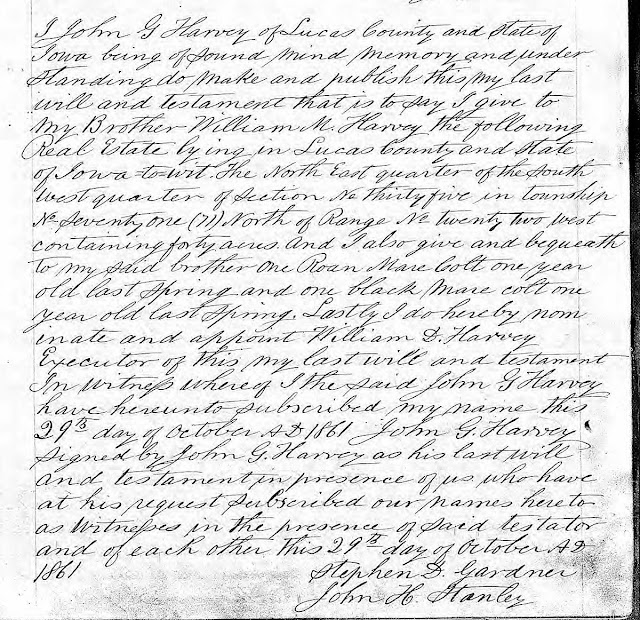 I John G Harvey of Lucas County and State of
Iowa being of sound mind memory and under
standing do make and publish this my last
will and testament that is to say I give to
my Brother William M. Harvey the following
Real Estate lying in Lucas County and State
of Iowa=to=wit. The North East quarter of the South
West quarter of Section No thirty five in township
No Seventy one (71) North of Range No twenty two west
containing forty acres. And I also give and bequeath
to my said brother One Roan Mare Colt one year
old last spring and one black Mare colt one
year old last spring. Lastly I do hereby nom
inate and appoint William D. Harvey
Executor of this my last will and testament
In witness whereof I the said John G Harvey
have hereunto subscribed my name this
29th day of October AD 1861 John G. Harvey
Signed by John G. Harvey as his last will
and testament in presence of us who have
at his request subscribed our names hereto
as witnesses in the presence of said testator
and of each other this 29th day of October AD
1861 Stephen D. Gardner
John H. Stanley